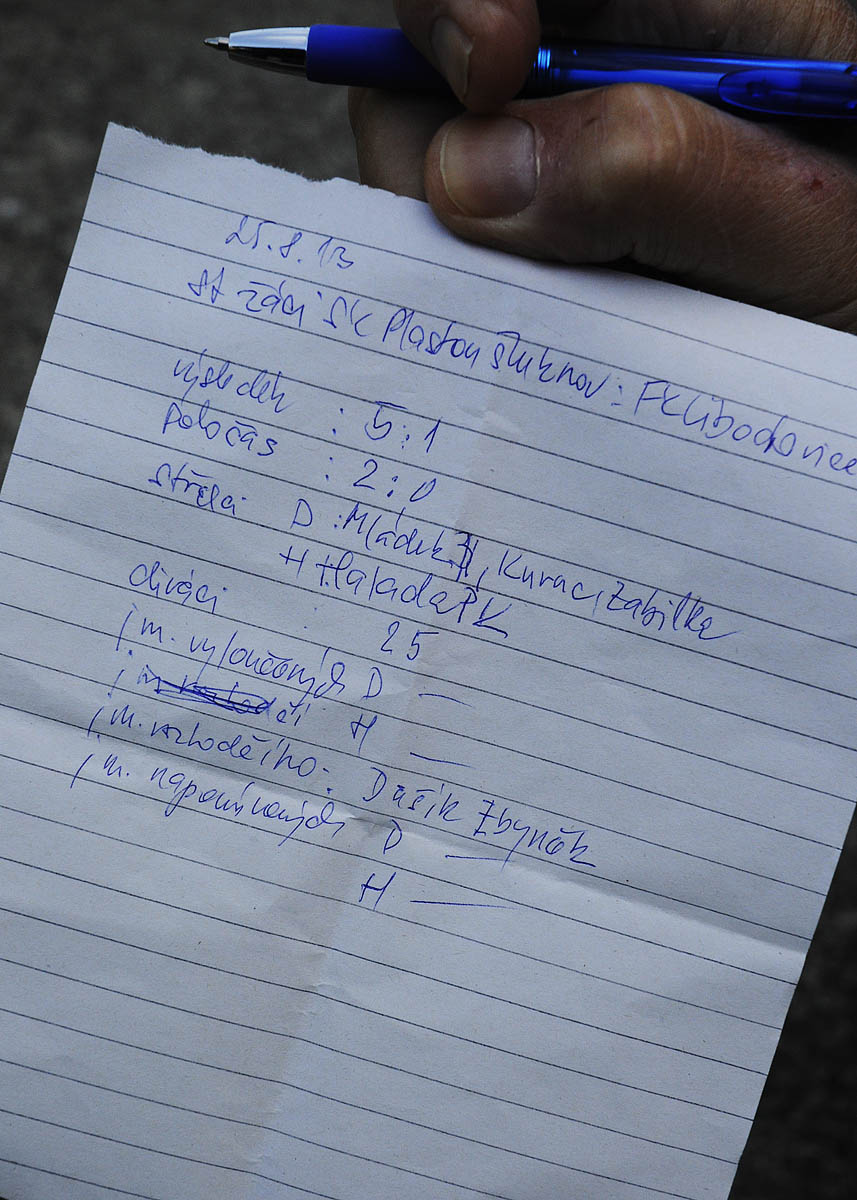 25.8.13
st žáci SK Plaston Šluknov : FK Libochovice
výsledek : 5:1
Poločas : 2:0
střelci D : Mládek, Kurac, Zabilka
H Hlakada PK
diváci : 25
jm. vyloučených D —
H —
jm. rozhodčího : Dušík Zbyněk
jm. napomínaných D —
H —